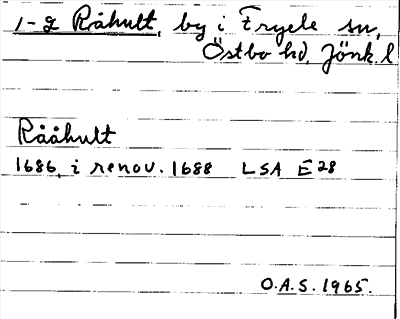 1-2 Råhult, by i Fryele sn,
Östbo hd, Jönk. l
Rååhult
1686, i renov. 1688 LSA E 28
O.A.S. 1965.